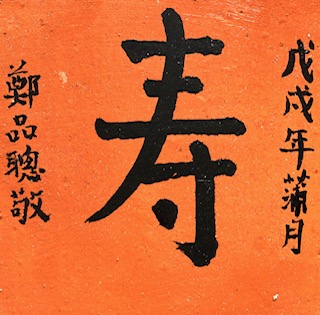 戊戌年蒲月
寿
鄭品聰敬